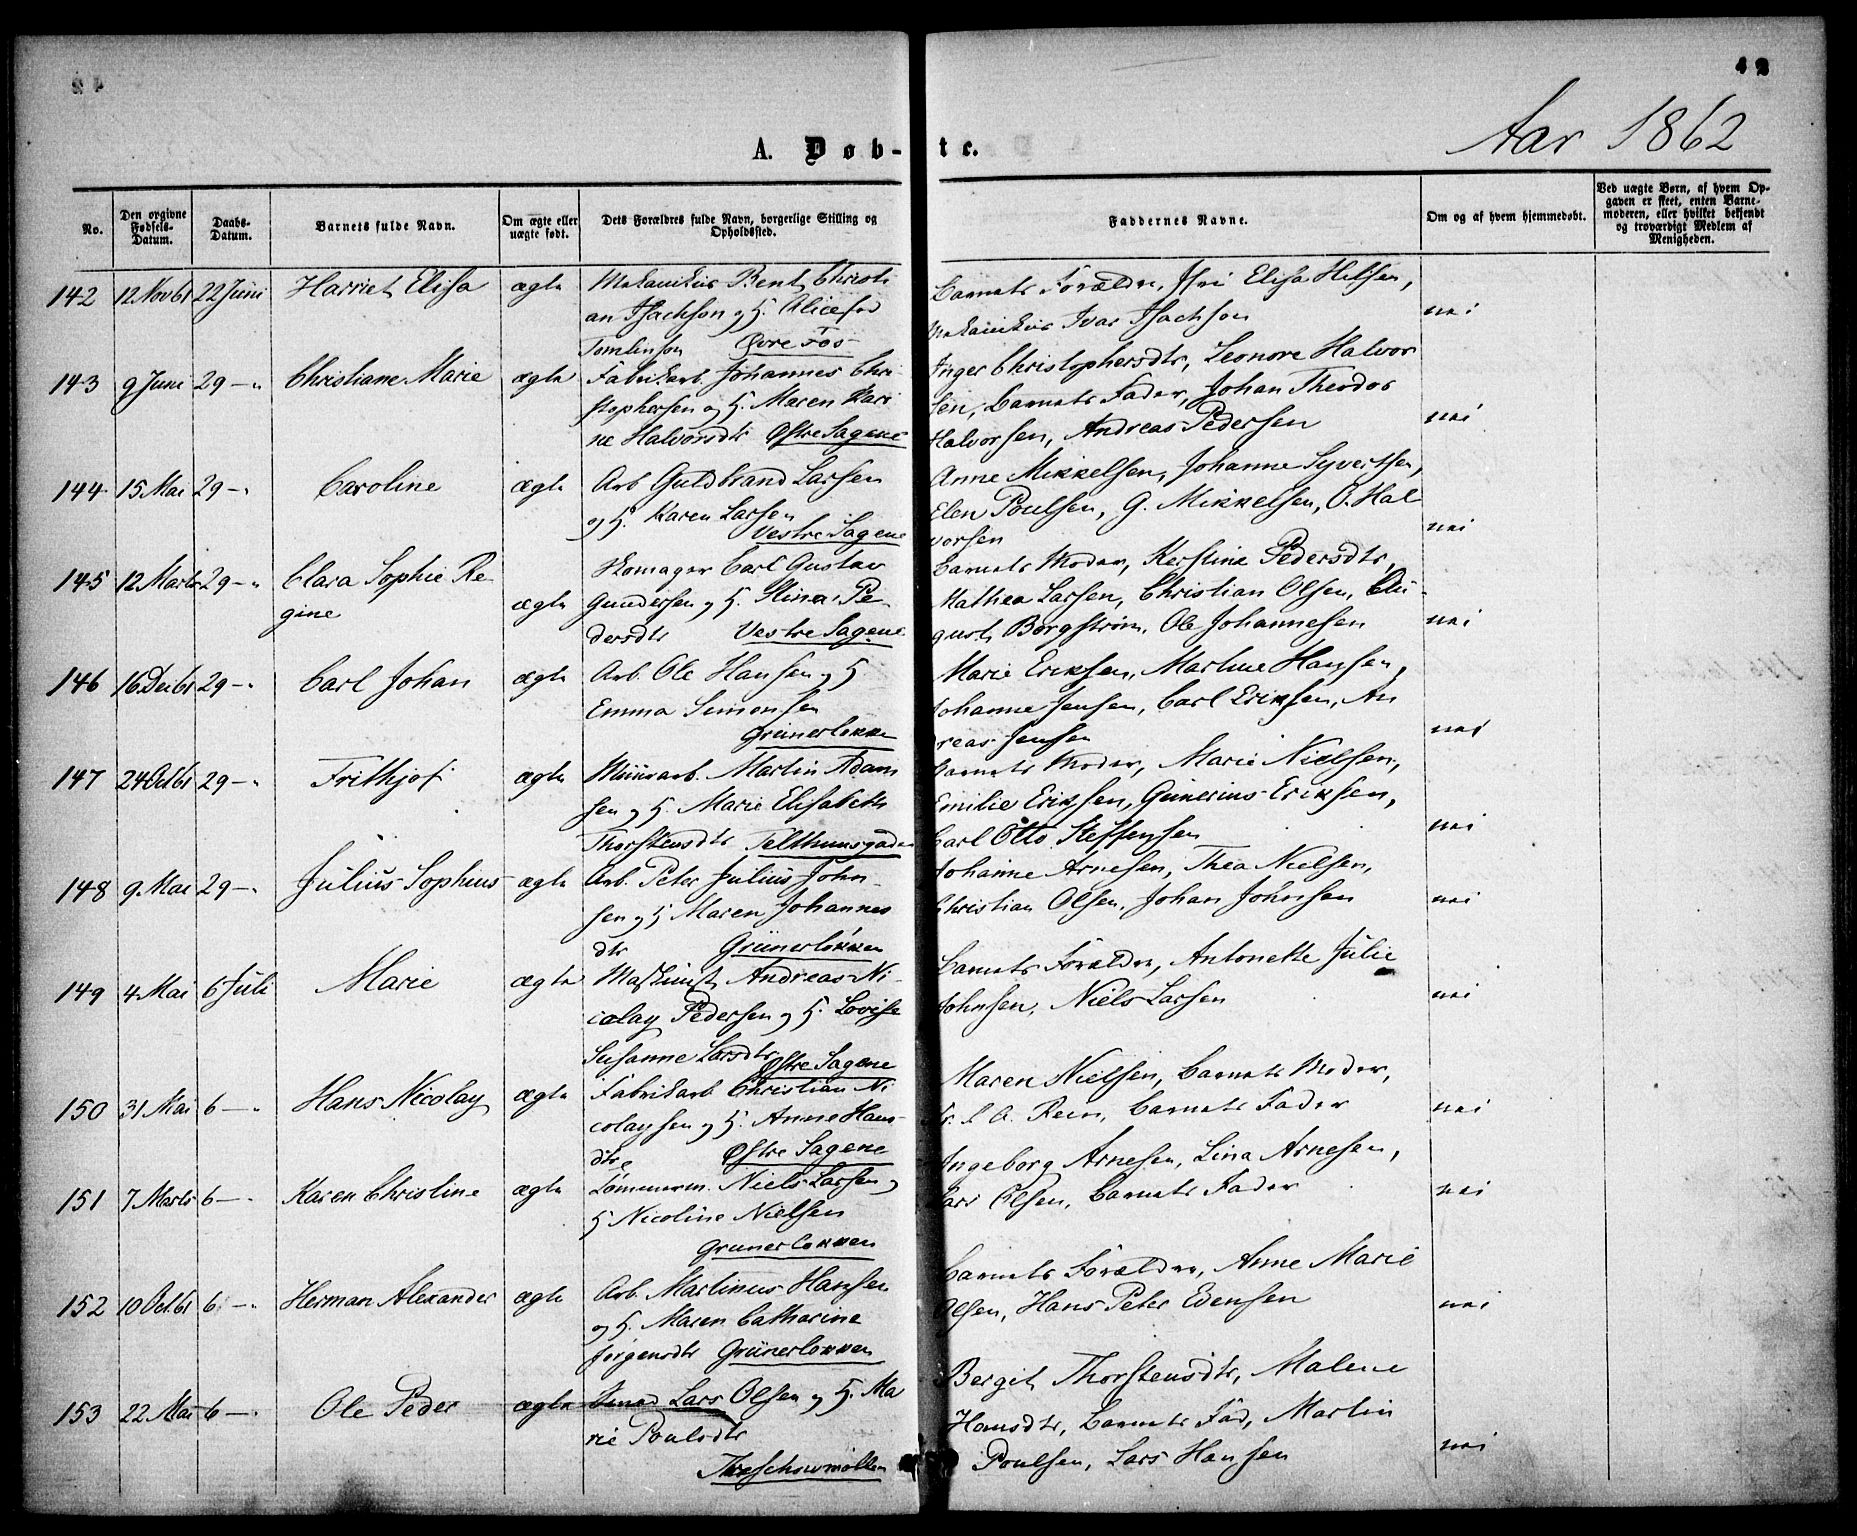 42
Aar 1862
A. Døb-te.
No.
Den opgivne Fødsels-Datum.
Daabs-Datum.
Barnets fulde Navn.
Om ægte eller uægte født.
Dets Forældres fulde Navn, borgerlige Stilling og Opholdssted.
Faddernes Navne.
Om og af hvem hjemmedøbt.
Ved uægte Børn, af hvem Op-
gaven er skeet, enten Barne-
moderen, eller hvilket bekjendt
og troværdigt Medlem af
Menigheden.
142 12 Nov 61 22 Juni Harriet Elisa ægte Mekanikus Bent Christi
an Isachsen og H. Alice fød
Tomlinson Øvre Fos
Barnets Forældre, Elisa Hilsen,
Mekanikus Ivar Isachsen nei
143 9 Juni 29 — " Christiane Marie ægte Fabrikarb. Johannes Chri-
stophersen og H. Maren Kari
ne Halvorsdtr Østre Sagene
Inger Christophersdtr, Leonore Halvor
sen, Barnets Fader, Johan Theodor
Halvorsen, Andreas Pedersen nei
144 15 Mai 29 — " Caroline ægte Arb Guldbrand Larsen
og H. Karen Larsen
Vestre Sagene
Anne Mikkelsen, Johanne Syvertsen,
Elen Poulsen, G. Mikkelsen, O. Hal
vorsen nei
145 12 Marts 29 — " Clara Sophie Re-
gine ægte Skomager Carl Gustav
Gundersen og H. Stina Pe-
dersdtr Vestre Sagene
Barnets Moder, Kerstine Pedersdtr,
Mathea Larsen, Christian Olsen, Au-
gust Borgstrøm, Ole Johannesen nei
146 16 Dec 61 29 — " Carl Johan ægte Arb. Ole Hansen og H
Emma Simonsen
Grünerløkken
Marie Eriksen, Martine Hansen,
Johanne Jensen, Carl Eriksen, An
dreas Jensen nei
147 24 Oct 61 29 — " Frithjof ægte Muurarb. Martin Adam
sen og H. Marie Elisabeth
Thorstensdtr Telthuusgaden
Barnets Moder, Marie Nielsen,
Emilie Eriksen, Gunerius Eriksen,
Carl Otto Steffensen nei
148 9 Mai 29 — " Julius Sophus ægte Arb. Peter Julius John-
sen og H Maren Johannes
dtr Grünerløkken
Johanne Arnesen, Thea Nielsen,
Christian Olsen, Johan Johnsen nei
149 4 Mai 6 Juli Marie ægte Maskinist Andreas Ni-
colay Pedersen og H. Lovise
Susanne Larsdtr Østre Sagene
Barnets Forældre, Antonette Julie
Johnsen, Niels Larsen nei
150 31 Mai 6 — " Hans Nicolay ægte Fabrikarb Christian Ni
colaysen og H. Anne Hans-
dtr Østre Sagene
Maren Nielsen, Barnets Moder,
A. Reen, Barnets Fader nei
151 7 Marts 6 — " Karen Christine ægte Tømmerm. Niels Larsen og
H Nicoline Nielsen
Grünerløkken
Ingeborg Arnesen, Lina Arnesen,
Lars Olsen, Barnets Fader nei
152 10 Oct. 61 6 — " Herman Alexander ægte Arb. Martinus Hansen
og H. Maren Catharine
Jørgensdtr Grünerløkken
Barnets Forældre, Anne Marie
Olsen, Hans Peter Evensen nei
153 22 Mai 6 — " Ole Peder ægte Smed Lars Olsen og H. Ma
rie Poulsdtr
Treschowmøllen
Bergit Thorstensdtr, Malene
Hansdtr, Barnets Fad, Martin
Poulsen, Lars Hansen nei